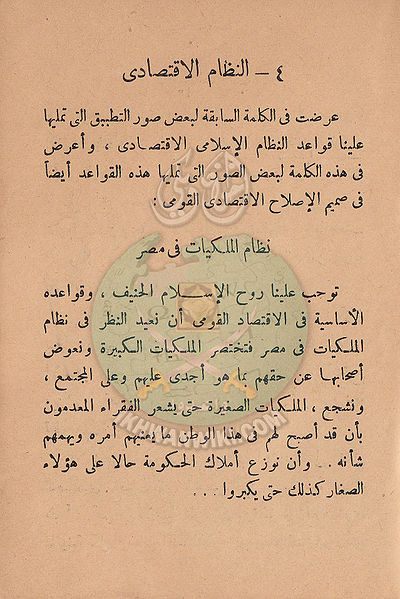 ٤ – النظام الاقتصادى
عرضت فى الكلمة السابقة لبعض صور التطبيق التى تمليها
علينا قواعد النظام الإسلامى الاقتصادى ، وأعرض
فى هذه الكلمة لبعض الصور التى تمليها هذه القواعد أيضاً
فى صميم الإصلاح الاقتصادى القومى :
نظام الملكيات فى مصر
توجب علينا روح الإسلام الحنيف ، وقواعده
الأساسية فى الاقتصاد القومى أن نعيد النظر فى نظام
الملكيات فى مصر فنختصر الملكيات الكبيرة ونعوض
أصحابها عن حقهم بما هو أجدى عليهم وعلى المجتمع ،
ونشجع ، الملكيات الصغيرة حتى يشعر الفقراء المعدمون
بأن قد أصبح لهم فى هذا الوطن ما يعنيهم أمره ويهمهم
شأنه .. وأن نوزع أملاك الحكومة حالا على هؤلاء
الصغار كذلك حتى يكبروا ...
KHWANWIKI.COM